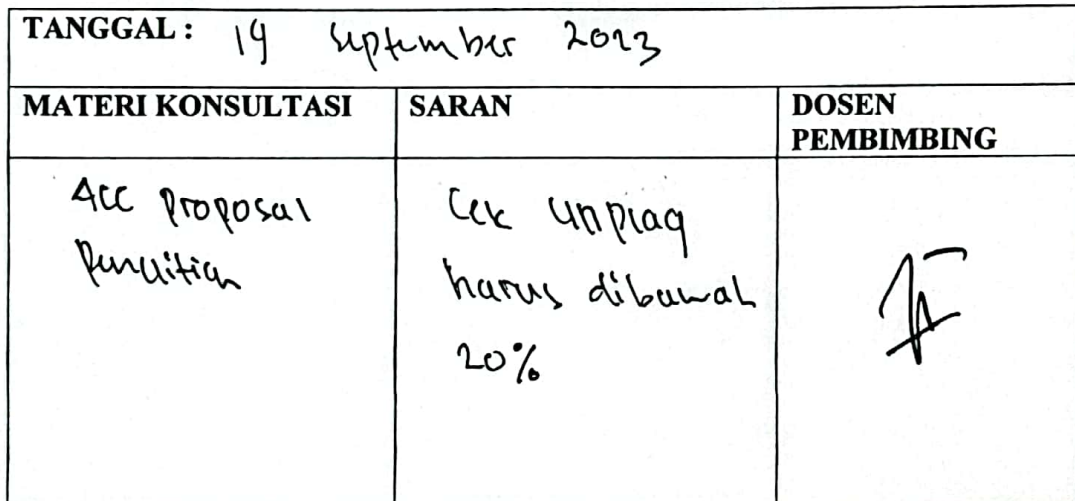 TANGGAL : 19 September 2023
MATERI KONSULTASI
SARAN
DOSEN
PEMBIMBING
ACC Proposal
Penelitian
Cek unplag
harus dibawah
20%